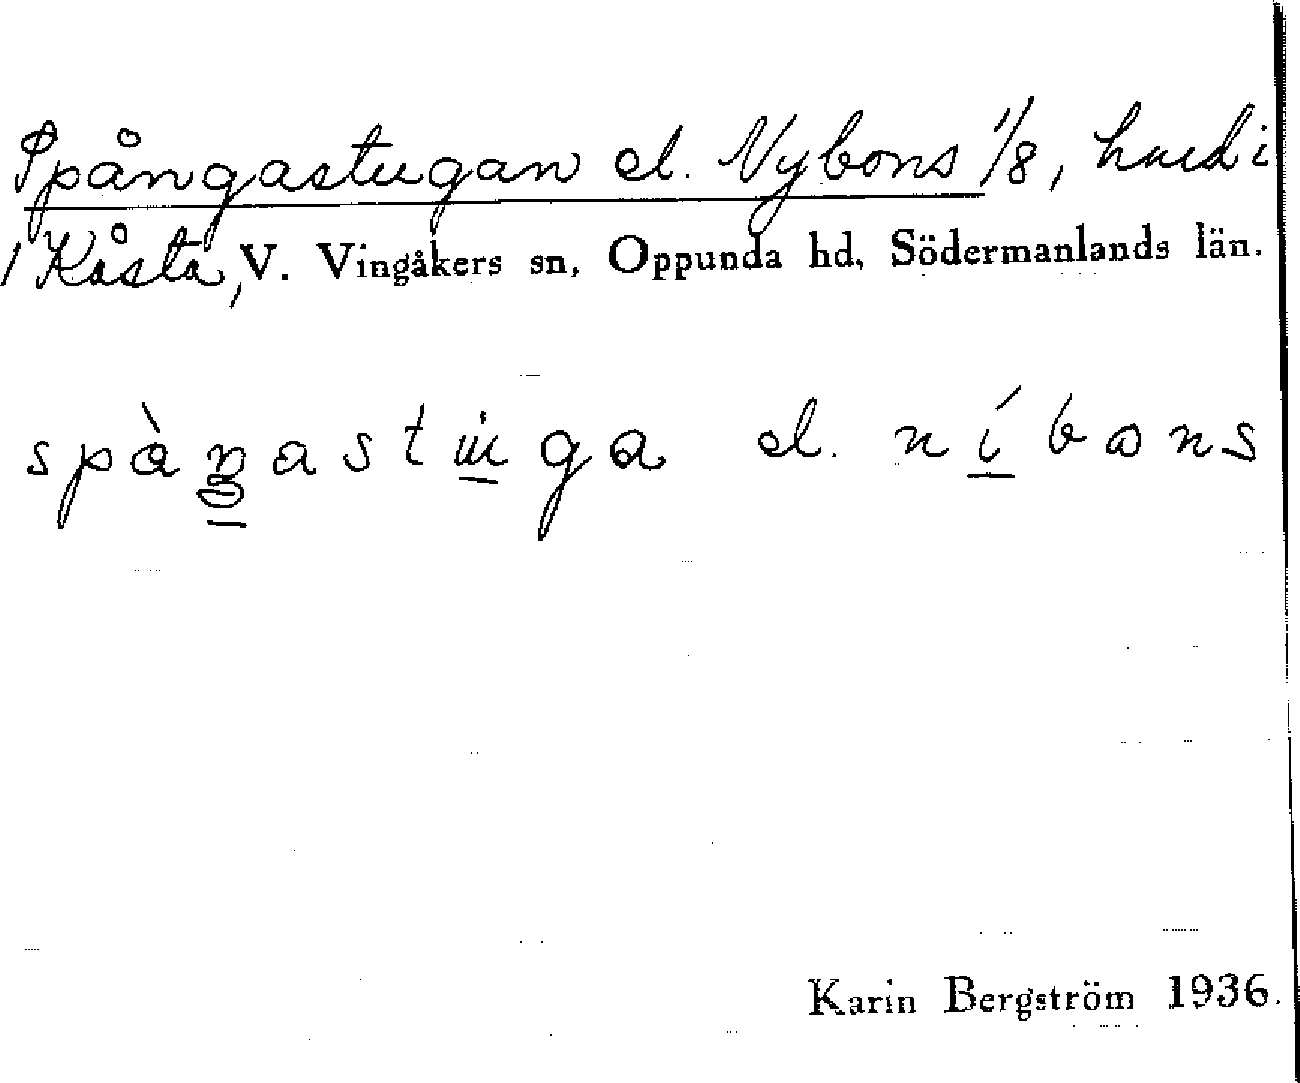 Spångastugan el. Nybons 1/8, hmd i
1 Kåsta, V. Vingåkers sn, Oppunda hd, Södermanlands län.
spàŋastu̇ga el. níbɷns
Karin Bergström 1936.